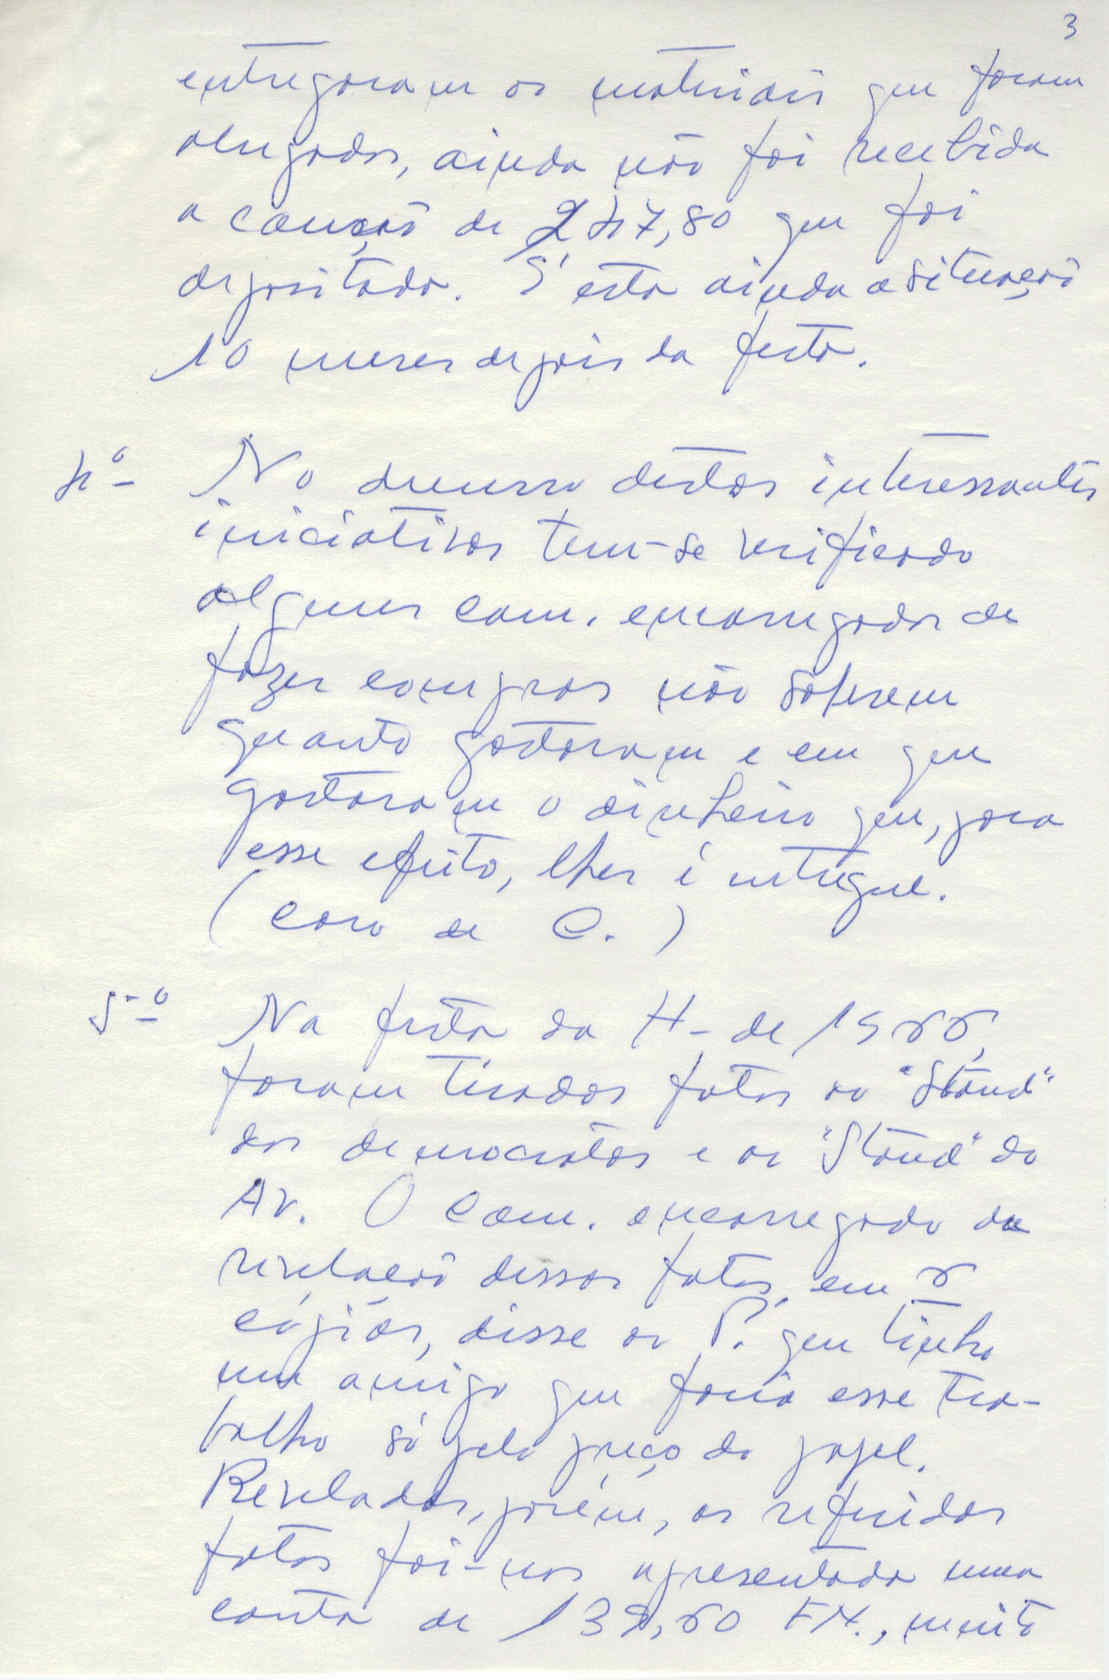 3
entregaram os materiais que foram
alugados, ainda não foi recebida
a caução de 247,80 que foi
depositada. É esta ainda a situação
10 meses depois da festa.
4º- No decurso destas interessantes
iniciativas tem-se verificado
alguns cam. encarregados de
fazer compras não saberem
quanto gastaram e em que
gastaram o dinheiro que, para
esse efeito, lhes é entregue.
(Caso de C.)
5-º Na festa da H- de 1966,
foram tiradas fotos ao "Stand"
dos democratas e ao "Stand" do
Av. O Cam. encarregado da
revelação dessas fotos, em 6
cópias, disse ao P. que tinha
um amigo que fazia esse tra-
balho só pelo preço do papel.
Reveladas, porém, as referidas
fotos foi-nos apresentada uma
conta de 139,60 FH., muito